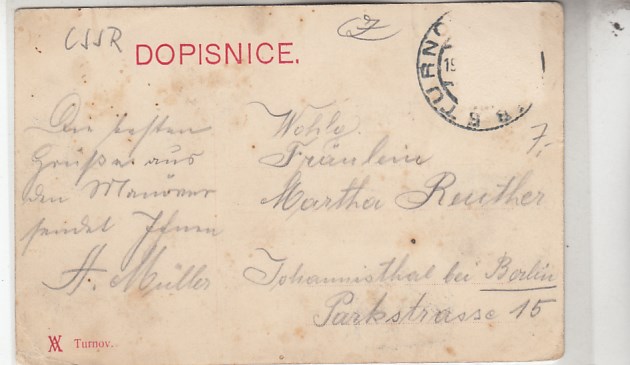 ČSSR
DOPISNICE.
TURNO
19
7,-
Die besten
Grüße aus
den Manöver
sendet Ihnen
A. Müller
Wohlg.
Fräulein
Martha Reuther
Johannisthal bei Berlin
Parkstrasse 15
Turnov.